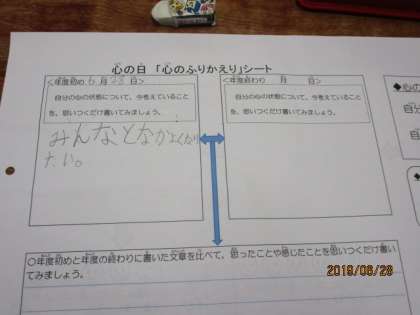 心の日 「心のふりかえり」シート
<年度初め 6月28日>
自分の心の状態について、今考えていること
を、思いつくだけ書いてみましょう。
みんなとなかよくなり
たい。
<年度終わり 月 日>
自分の心の状態について、今考えていること
を、思いつくだけ書いてみましょう。
◆心の
自分
自
〇年度初めと年度の終わりに書いた文章を比べて、思ったことや感じたことを思いつくだけ書い
てみましょう。
2019/06/28